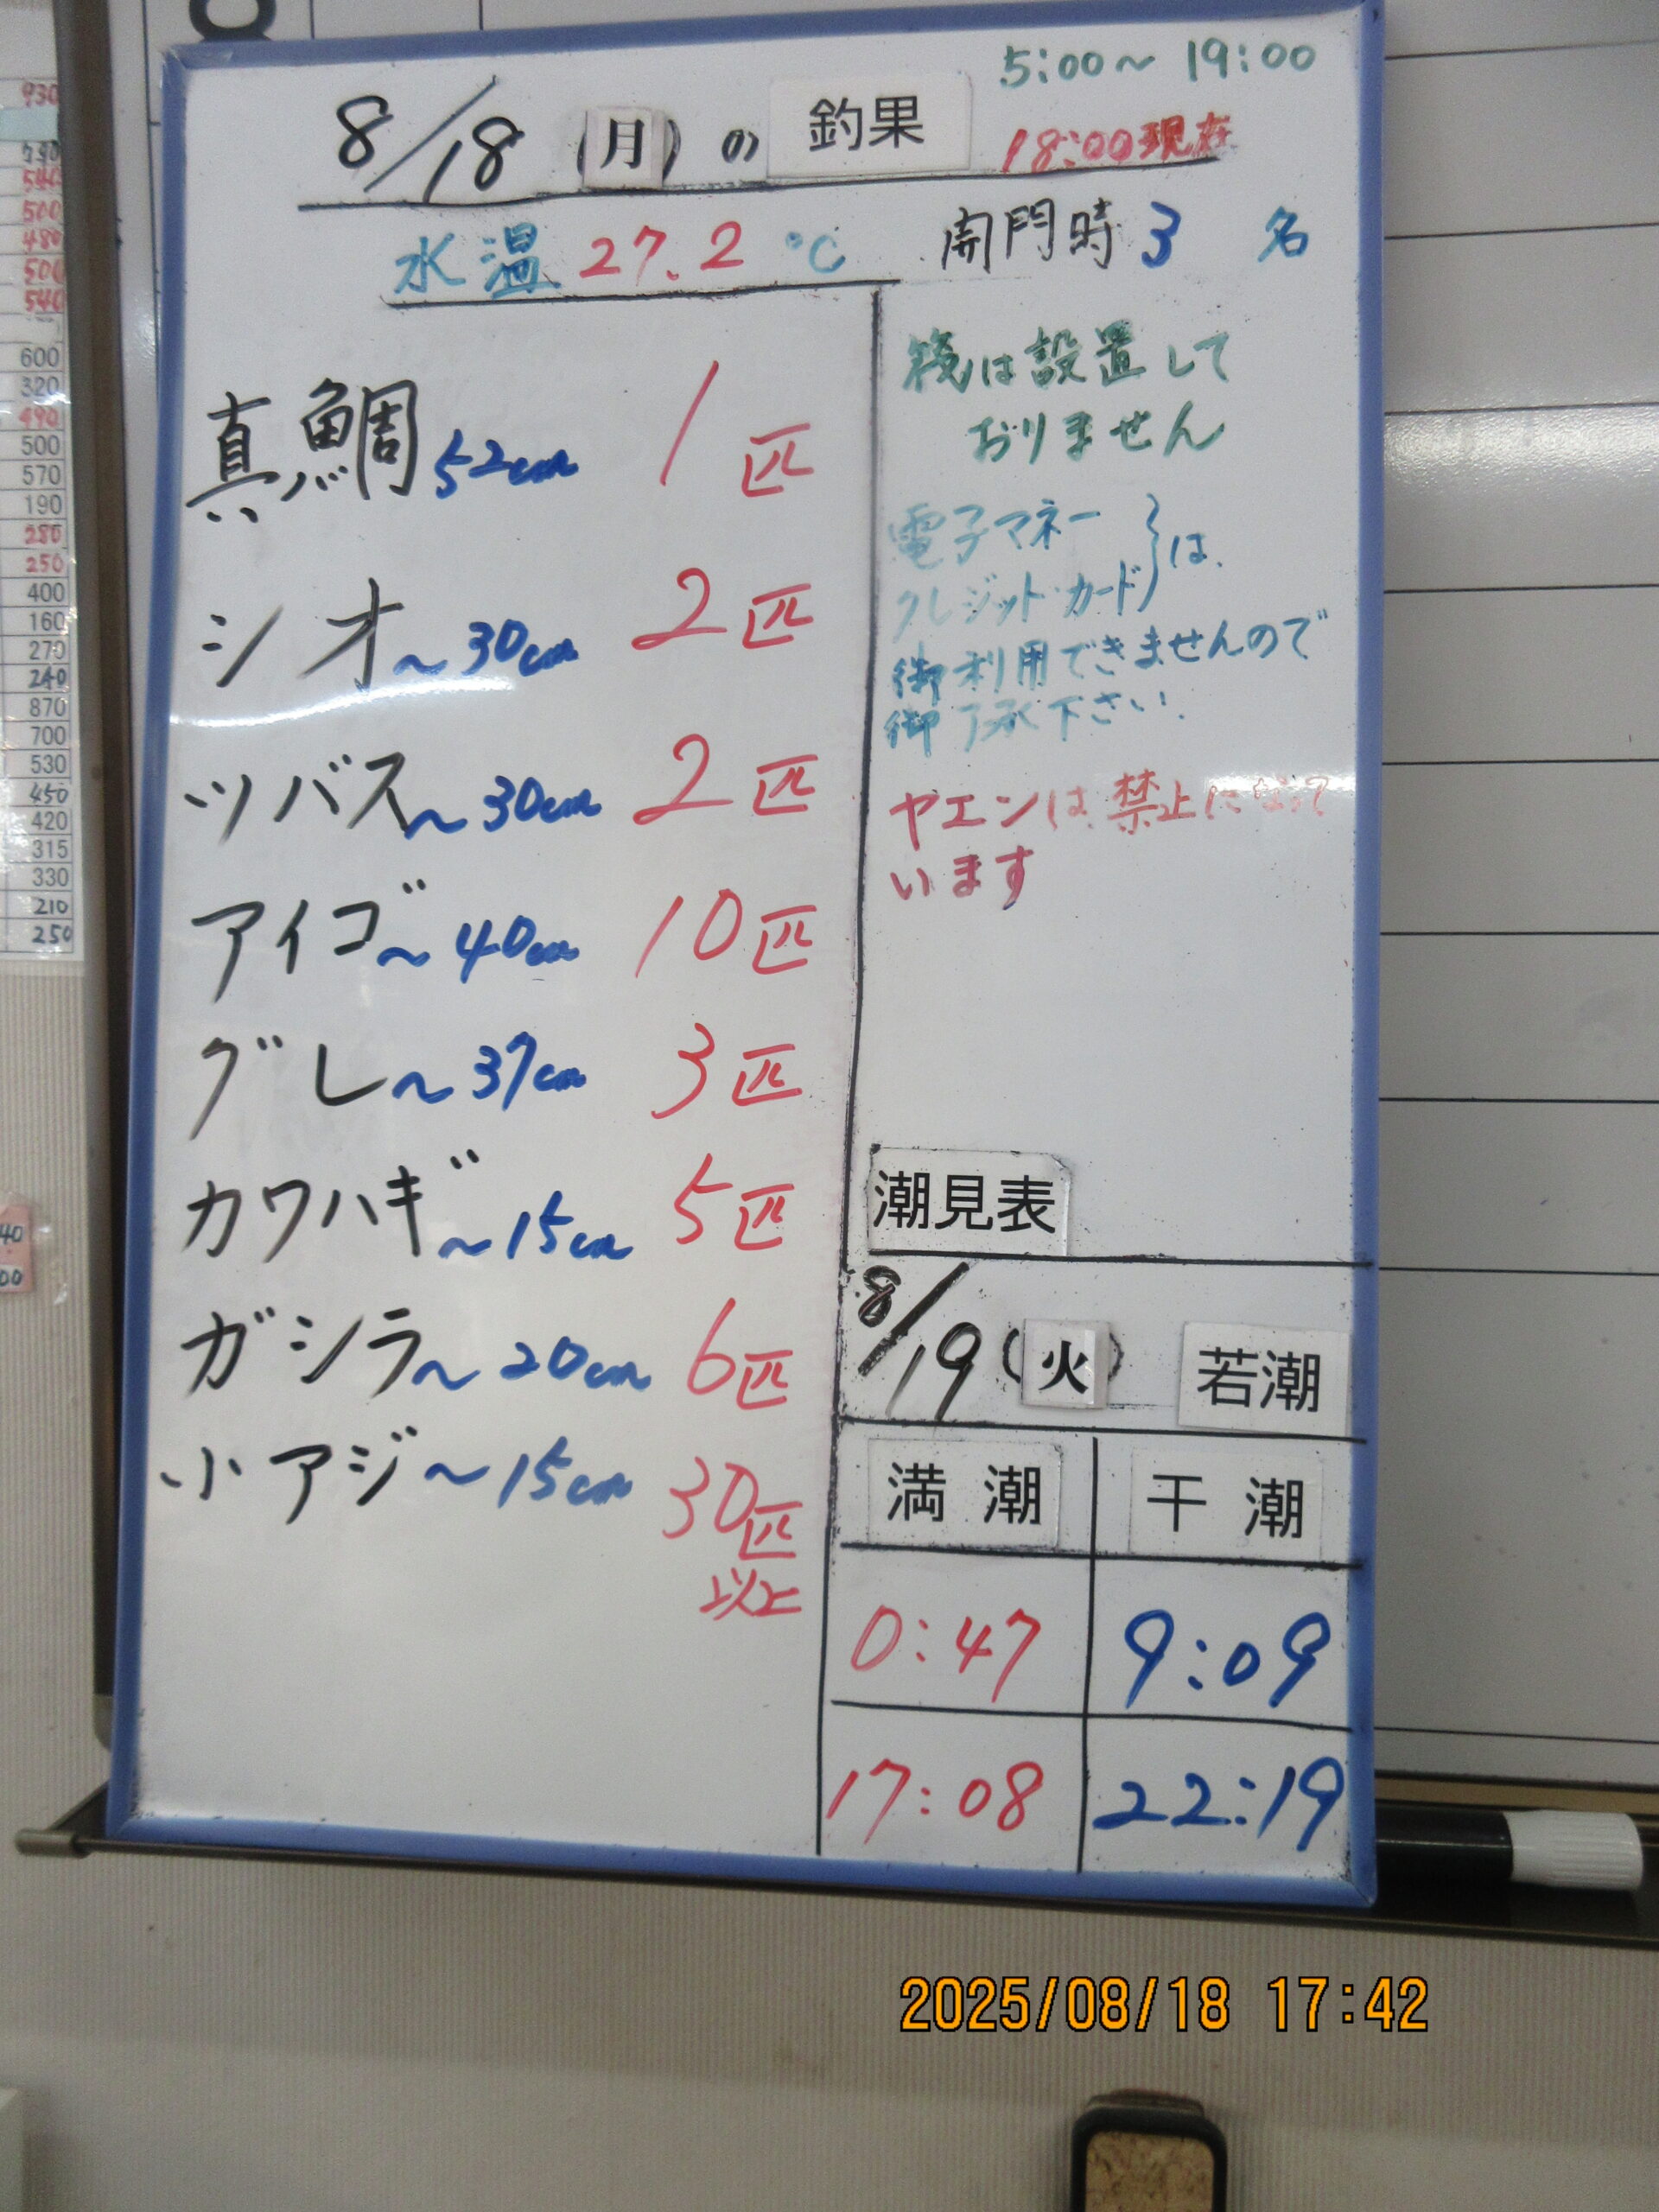 5:00～19:00
8/18(月)の釣果
18:00現在
水温 27.2℃ 開門時 3名
真鯛 52cm 1匹
シオ～30cm 2匹
ツバス～30cm 2匹
アイゴ～40cm 10匹
グレ～37cm 3匹
カワハギ～15cm 5匹
ガシラ～20cm 6匹
小アジ～15cm 30匹
以上
筏は設置して
おりません
電子マネー
クレジット・カード}は、
御利用できませんので
御了承下さい。
ヤエンは禁止になって
います
潮見表
8/19(火) 若潮
満潮 干潮
0:47 9:09
17:08 22:19
930
540
500
480
500
540
600
320
490
500
570
190
280
250
400
160
270
240
870
700
530
450
420
315
330
210
250
2025/08/18 17:42